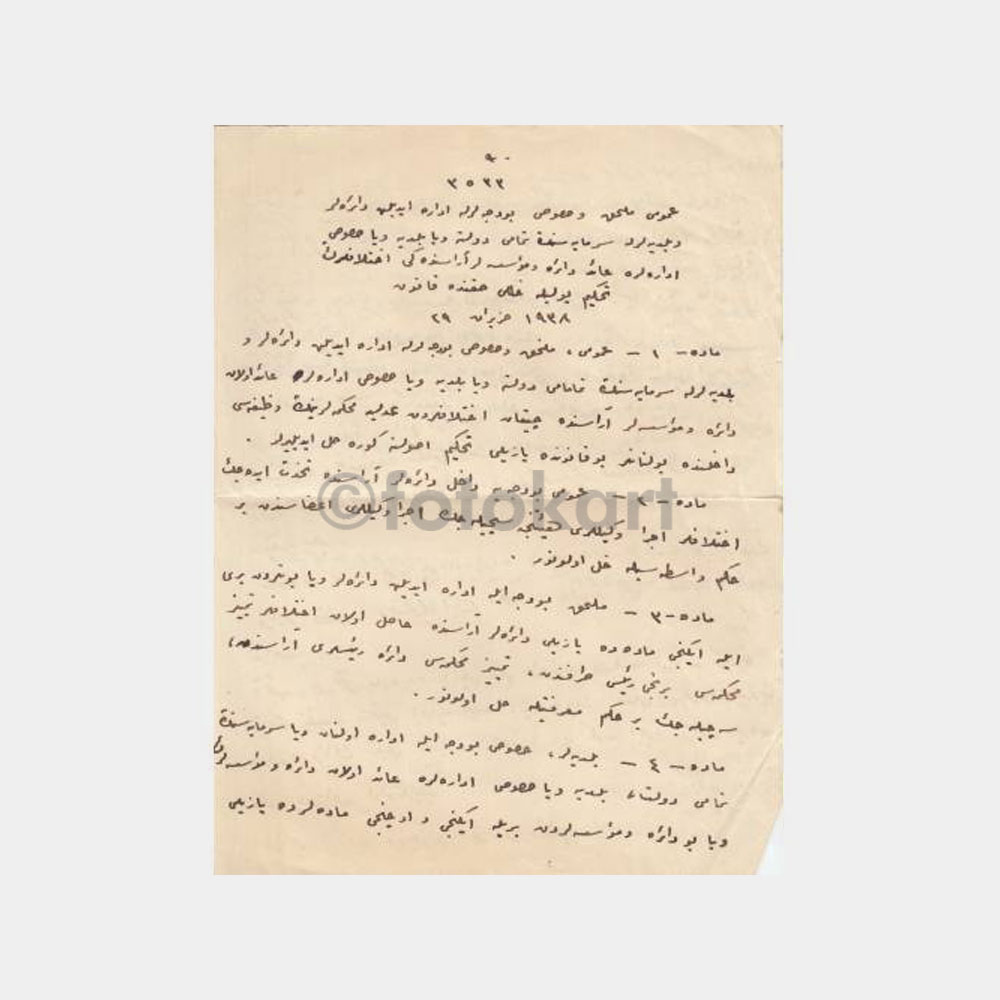 ٩٠
٣٥٣٣
عمومی ملحق وخصوصی بودجه‌لرله اداره ایدیلن دائره‌لر
وبلدیه‌لرله سرمایه‌سنك تمامی دولته ویا بلدیه ویا خصوصی
اداره‌لره عائد دائره ومؤسسه‌لر آراسنده‌كی اختلافلرك
تحكیم یولیله حلی حقنده قانون
٢٩ حزیران ١٩٣٨
ماده - ١ - عمومی، ملحق وخصوصی بودجه‌لرله اداره ایدیلن دائره‌لر و
بلدیه‌لرله سرمایه‌سنك تمامی دولته ویا بلدیه ویا خصوصی اداره‌لره عائد اولان
دائره ومؤسسه‌لر آراسنده چیقان اختلافلردن عدلیه محكمه‌لرینك وظیفه‌سی
داخلنده بولنانلر بوقانونده یازیلی تحكیم اصولنه كوره حل ایدیلیرلر .
ماده - ٢ - عمومی بودجه‌یه داخل دائره‌لر آراسنده تحدث ایده‌جك
اختلافلر اجرا وكیللری هیئتنجه سچیله‌جك اجرا وكیللری اعضاسندن بر
حكم واسطه‌سیله حل اولونور .
ماده - ٣ - ملحق بودجه ایله اداره ایدیلن دائره‌لر ویا بونلردن بری
ایله ایكنجی ماده‌ده یازیلی دائره‌لر آراسنده حاصل اولان اختلافلر تمییز
محكمه‌سی برنجی رئیسی طرفندن، تمییز محكمه‌سی دائره رئیسلری آراسندن،
سچیله‌جك بر حكم معرفتیله حل اولونور .
ماده - ٤ - بلدیه‌لر، خصوصی بودجه ایله اداره اولنان ویا سرمایه‌سنك
تمامی دولته، بلدیه ویا خصوصی اداره‌لره عائد اولان دائره ومؤسسه‌لرك
ویا بو دائره ومؤسسه‌لردن بریله ایكنجی و اوچنجی ماده‌لرده یازیلی
©fotokart